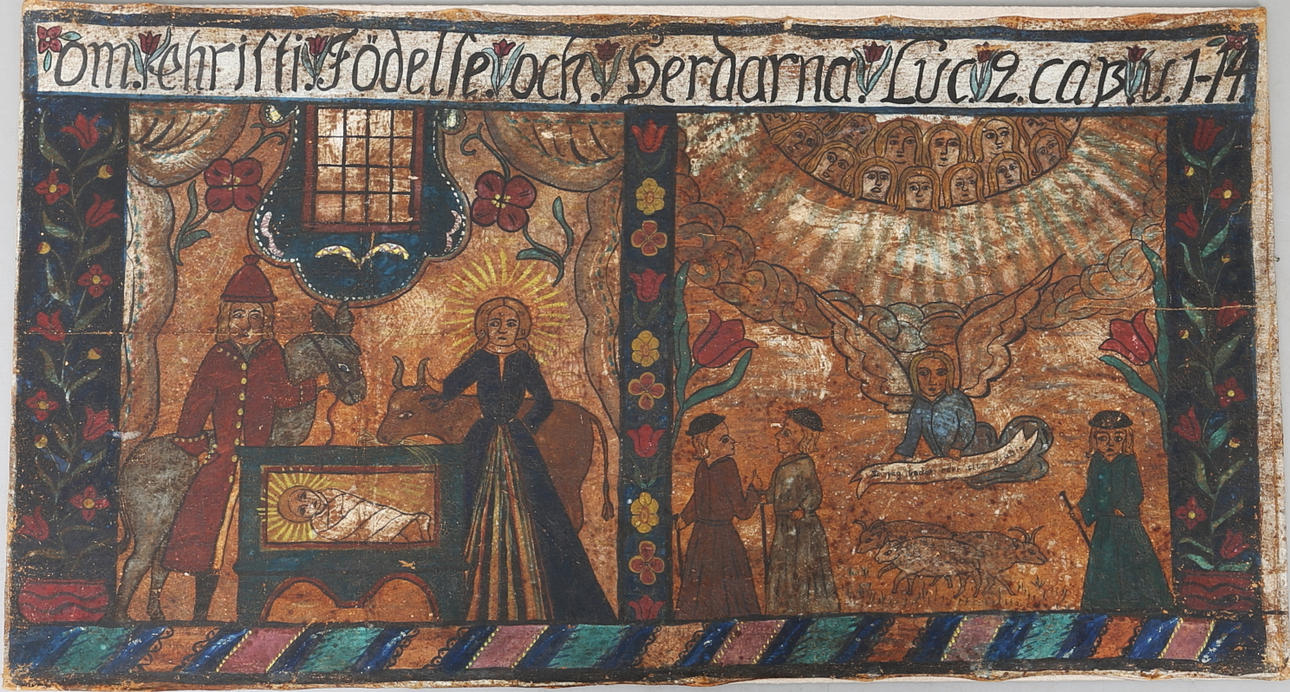 om. christi. Födelse. och. Herdarna. Luc. 2. cap. v. 1-14